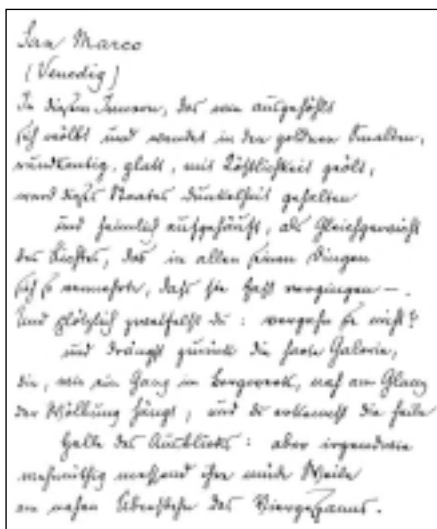 San Marco
(Venedig)
In diesem Innern, das wie ausgehöhlt
sich wölbt und wendet in den goldnen Smalten,
rundkantig, glatt, mit Köstlichkeit geölt,
ward dieses Staates Dunkelheit gehalten
und heimlich aufgehäuft, als Gleichgewicht
des Lichtes, das in allen seinen Dingen
sich so vermehrte, daß sie fast vergingen —.
Und plötzlich zweifelst du: vergehn sie nicht?
und drängst zurück die harte Galerie,
die, wie ein Gang im Bergwerk, nah am Glanz
der Wölbung hängt; und du erkennst die heile
Helle des Ausblicks: aber irgendwie
wehmüthig messend ihre müde Weile
am nahen Überstehn des Viergespanns.